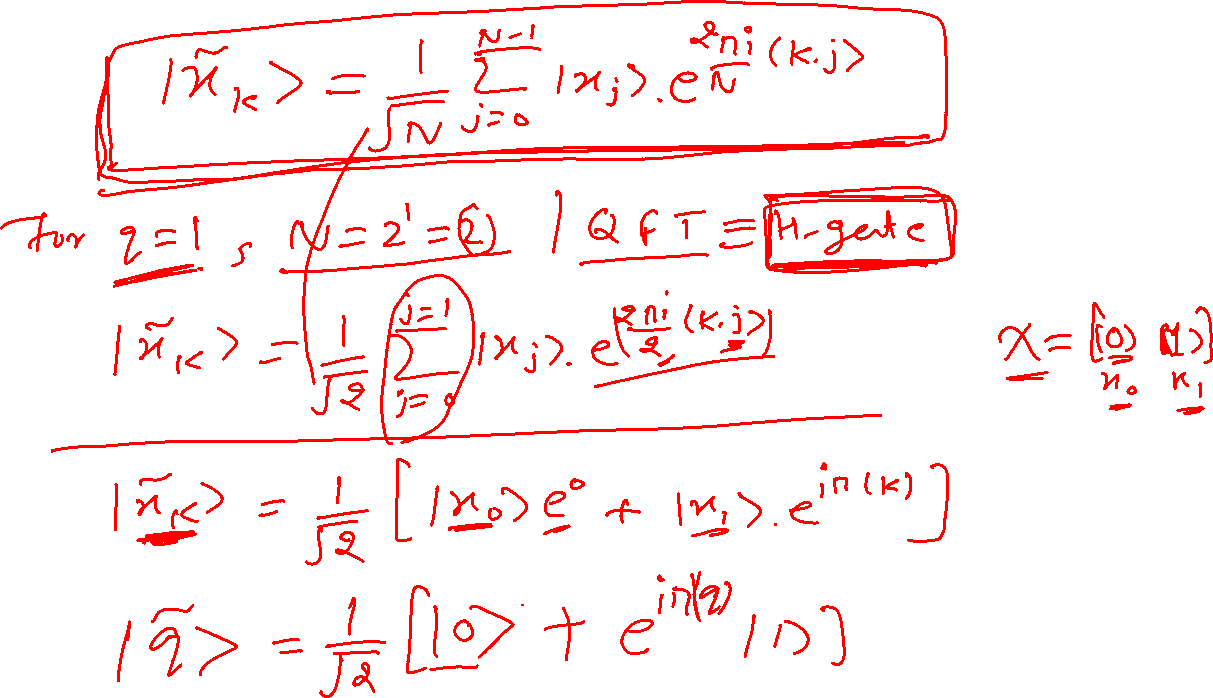 |x̃_k> = 1/√N Σ_{j=0}^{N-1} |x_j>.e^{2πi/N (k.j)}
For q=1, N=2^1=2 | QFT ≡ H-gate
|x̃_k> = 1/√2 Σ_{j=0}^{j=1} |x_j>.e^{(2πi/2 (k.j))}
X = [|0> |1>]
x_0 x_1
|x̃_k> = 1/√2 [|x_0> e^0 + |x_1>.e^{iπ(k)}]
|q̃> = 1/√2 [|0> + e^{iπ(q)} |1>]